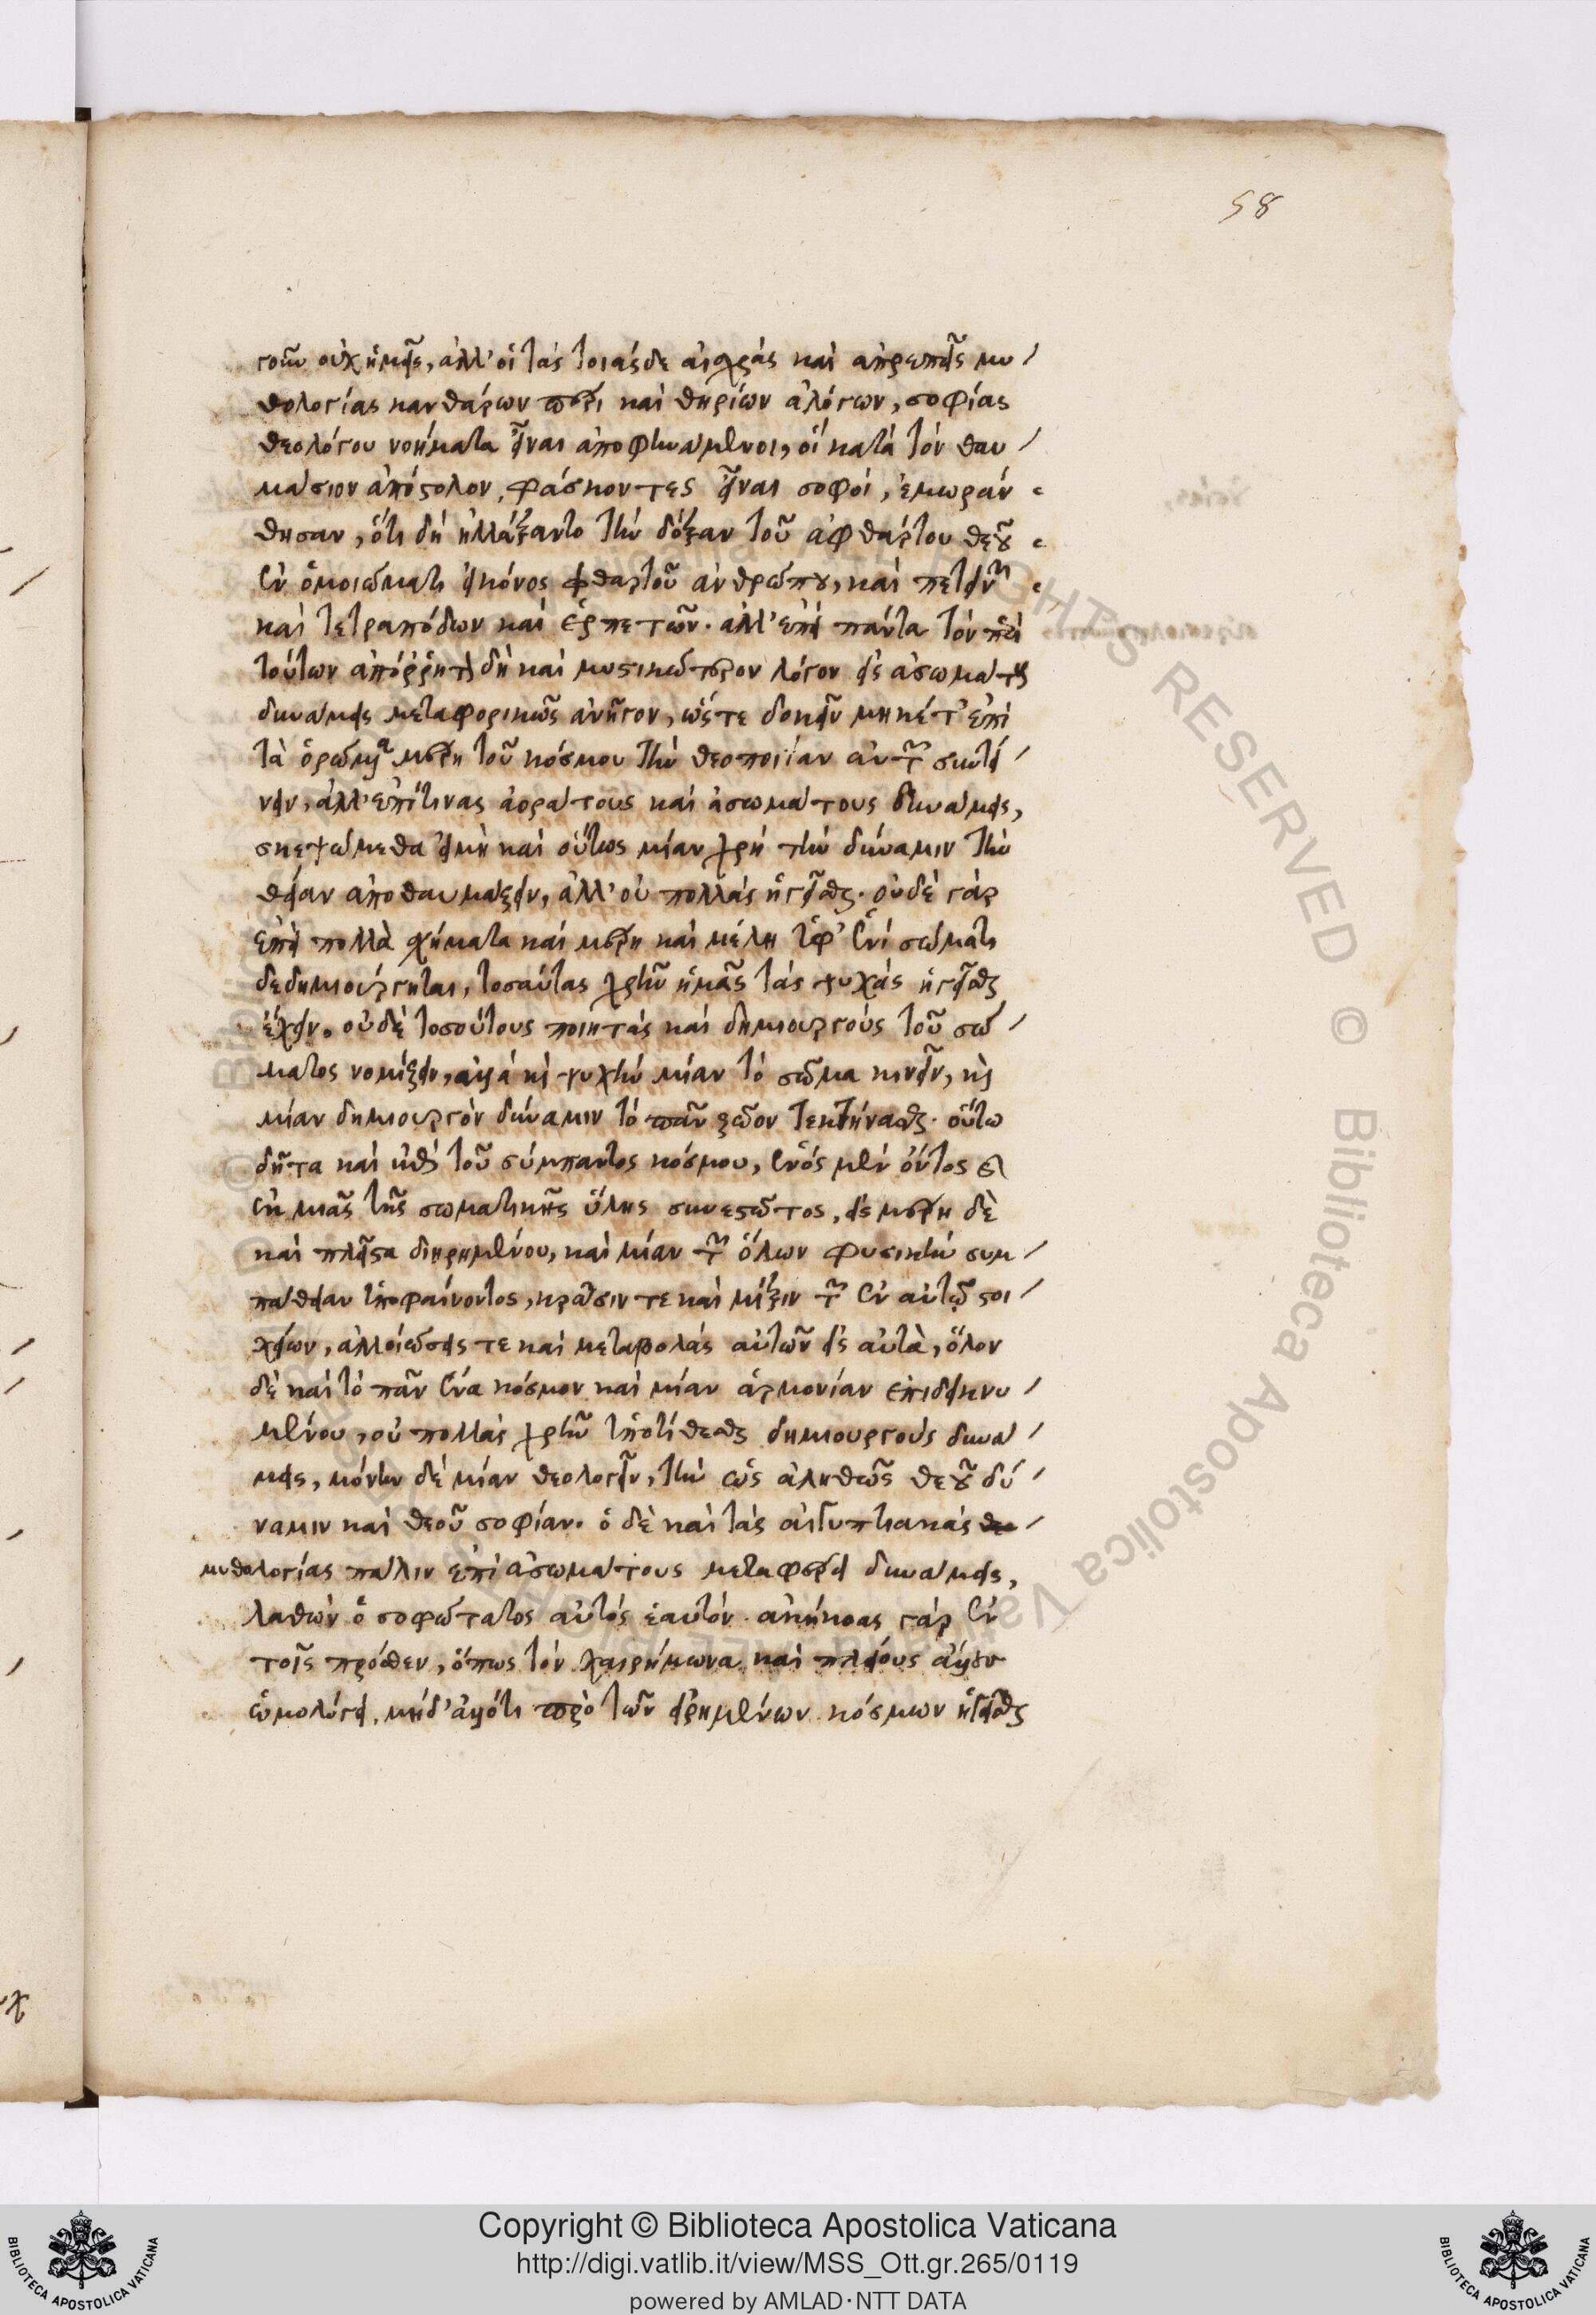 58
γοῦν οὐχ ἡμεῖς, ἀλλ' οἱ τὰς τοιάσδε αἰσχρὰς καὶ ἀπρεπεῖς μυ
θολογίας κανθάρων πέρι καὶ θηρίων ἀλόγων, σοφίας
θεολόγου νοήματα εἶναι ἀποφηνάμενοι, οἳ κατὰ τὸν θαυ
μάσιον ἀπόστολον, φάσκοντες εἶναι σοφοί, ἐμωράν
θησαν, ὅτι δὴ ἠλλάξαντο τὴν δόξαν τοῦ ἀφθάρτου θεοῦ
ἐν ὁμοιώματι εἰκόνος φθαρτοῦ ἀνθρώπου, καὶ πετεινῶν
καὶ τετραπόδων καὶ ἑρπετῶν. ἀλλ' ἐπεὶ πάντα τὸν περὶ
τούτων ἀπόρρητον δὴ καὶ μυστικώτερον λόγον εἰς ἀσωμάτους
δυνάμεις μεταφορικῶς ἀνῆγον, ὥστε δοκεῖν μηκέτ' ἐπὶ
τὰ ὁρώμενα μέρη τοῦ κόσμου τὴν θεοποιίαν αὐτῶν συντεί
νειν, ἀλλ' ἐπί τινας ἀοράτους καὶ ἀσωμάτους δυνάμεις,
σκεψώμεθα εἰ μὴ καὶ οὕτως μίαν χρὴ τὴν δύναμιν τὴν
θείαν ἀποθαυμάζειν, ἀλλ' οὐ πολλὰς ἡγεῖσθαι. οὐδὲ γὰρ
ἐπεὶ πολλὰ σχήματα καὶ μέρη καὶ μέλη ἐφ' ἑνὶ σώματι
δεδημιούργηται, τοσαύτας χρῆν ἡμᾶς τὰς ψυχὰς ἡγεῖσθαι
ἔχειν. οὐδὲ τοσούτους ποιητὰς καὶ δημιουργοὺς τοῦ σώ
ματος νομίζειν, ἀλλὰ καὶ ψυχὴν μίαν τὸ σῶμα κινεῖν, καὶ
μίαν δημιουργὸν δύναμιν τὸ πᾶν ζῶον τεκτήνασθαι. οὕτω
δῆτα καὶ ἐπὶ τοῦ σύμπαντος κόσμου, ἑνὸς μὲν ὄντος καὶ
ἐκ μιᾶς τῆς σωματικῆς ὕλης συνεστῶτος, εἰς μέρη δὲ
καὶ πλεῖστα διῃρημένου, καὶ μίαν τῶν ὅλων φυσικὴν συμ
πάθειαν ὑποφαίνοντος, κρᾶσίν τε καὶ μίξιν τῶν ἐν αὐτῷ στοι
χείων, ἀλλοιώσεις τε καὶ μεταβολὰς αὐτῶν εἰς αὐτὰ, ὅλον
δὲ καὶ τὸ πᾶν ἕνα κόσμον καὶ μίαν ἁρμονίαν ἐπιδεικνυ
μένου, οὐ πολλὰς χρῆν ὑποτίθεσθαι δημιουργοὺς δυνά
μεις, μόνην δὲ μίαν θεολογεῖν, τὴν ὡς ἀληθῶς θεοῦ δύ
ναμιν καὶ θεοῦ σοφίαν. ὁ δὲ καὶ τὰς αἰγυπτιακὰς
μυθολογίας πάλιν ἐπὶ ἀσωμάτους μεταφέρει δυνάμεις,
λαθὼν ὁ σοφώτατος αὐτὸς ἑαυτόν. ἀκήκοας γὰρ ἐν
τοῖς πρόσθεν, ὅπως τὸν χαιρήμωνα καὶ πλείους ἄλλους
ὡμολόγει, μηδ' ἄλλό τι πρὸ τῶν εἰρημένων κόσμων ἡγεῖσθαι
Copyright © Biblioteca Apostolica Vaticana
http://digi.vatlib.it/view/MSS_Ott.gr.265/0119
powered by AMLAD·NTT DATA